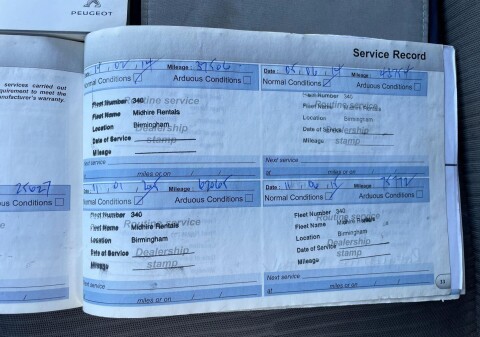 PEUGEOT
services carried out
equirement to meet the
nufacturer's warranty.
25627
ous Conditions
Service Record
Mileage : 37506
Normal Conditions Arduous Conditions
Routine service
Fleet Number 340
Fleet Name Midhire Rentals
Location Birmingham
Dealership
Date of Service
stamp
Mileage
Next service
miles or on / /
Date : 05, 06, 14 Mileage :
Normal Conditions Arduous Conditions
Fleet Number 340
Routine service
Fleet Name Midhire Rentals
Location Birmingham
Dealership
Date of Service
stamp
Mileage
Next service
at miles or on / /
Mileage :
Normal Conditions Arduous Conditions
Fleet Number 340
Routine service
Fleet Name Midhire Rentals
Location Birmingham
Date of Service Dealership
Mileage stamp
Next service
miles or on / /
Date : Mileage :
Normal Conditions Arduous Conditions
Fleet Number 340
Routine service
Fleet Name Midhire Rentals
Location Birmingham
Date of Service Dealership
Mileage stamp
Next service
at miles or on / /